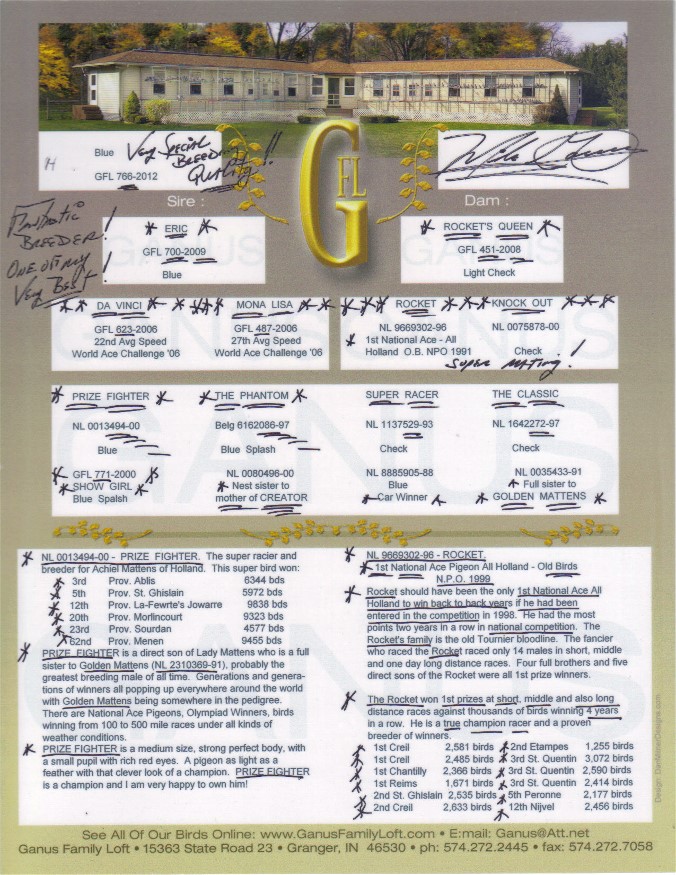 H
Blue
GFL 766-2012
Very Special
Breeder
Quality!!
G
FL
Fantastic
Breeder!
One of my
Very Best!
Sire :
Dam :
ERIC
GFL 700-2009
Blue
ROCKET'S QUEEN
GFL 451-2008
Light Check
DA VINCI
GFL 623-2006
22nd Avg Speed
World Ace Challenge '06
MONA LISA
GFL 487-2006
27th Avg Speed
World Ace Challenge '06
ROCKET
NL 9669302-96
1st National Ace - All
Holland O.B. NPO 1991
KNOCK OUT
NL 0075878-00
Check
Super Mating!
PRIZE FIGHTER
NL 0013494-00
Blue
THE PHANTOM
Belg 6162086-97
Blue Splash
SUPER RACER
NL 1137529-93
Check
THE CLASSIC
NL 1642272-97
Check
GFL 771-2000
SHOW GIRL
Blue Spalsh
NL 0080496-00
Nest sister to
mother of CREATOR
NL 8885905-88
Blue
Car Winner
NL 0035433-91
Full sister to
GOLDEN MATTENS
NL 0013494-00 - PRIZE FIGHTER. The super racier and
breeder for Achiel Mattens of Holland. This super bird won:
3rd Prov. Ablis 6344 bds
5th Prov. St. Ghislain 5972 bds
12th Prov. La-Fewrte's Jowarre 9838 bds
20th Prov. Morlincourt 9323 bds
23rd Prov. Sourdan 4577 bds
62nd Prov. Menen 9455 bds
PRIZE FIGHTER is a direct son of Lady Mattens who is a full
sister to Golden Mattens (NL 2310369-91), probably the
greatest breeding male of all time. Generations and genera-
tions of winners all popping up everywhere around the world
with Golden Mattens being somewhere in the pedigree.
There are National Ace Pigeons, Olympiad Winners, birds
winning from 100 to 500 mile races under all kinds of
weather conditions.
PRIZE FIGHTER is a medium size, strong perfect body, with
a small pupil with rich red eyes. A pigeon as light as a
feather with that clever look of a champion. PRIZE FIGHTER
is a champion and I am very happy to own him!
NL 9669302-96 - ROCKET.
1st National Ace Pigeon All Holland - Old Birds
N.P.O. 1999
Rocket should have been the only 1st National Ace All
Holland to win back to back years if he had been
entered in the competition in 1998. He had the most
points two years in a row in national competition. The
Rocket's family is the old Tournier bloodline. The fancier
who raced the Rocket raced only 14 males in short, middle
and one day long distance races. Four full brothers and five
direct sons of the Rocket were all 1st prize winners.
The Rocket won 1st prizes at short, middle and also long
distance races against thousands of birds winning 4 years
in a row. He is a true champion racer and a proven
breeder of winners.
1st Creil 2,581 birds 2nd Etampes 1,255 birds
1st Creil 2,485 birds 3rd St. Quentin 3,072 birds
1st Chantilly 2,366 birds 3rd St. Quentin 2,590 birds
1st Reims 1,671 birds 3rd St. Quentin 2,414 birds
2nd St. Ghislain 2,535 birds 5th Peronne 2,177 birds
2nd Creil 2,633 birds 12th Nijvel 2,456 birds
See All Of Our Birds Online: www.GanusFamilyLoft.com • E:mail: Ganus@Att.net
Ganus Family Loft • 15363 State Road 23 • Granger, IN 46530 • ph: 574.272.2445 • fax: 574.272.7058